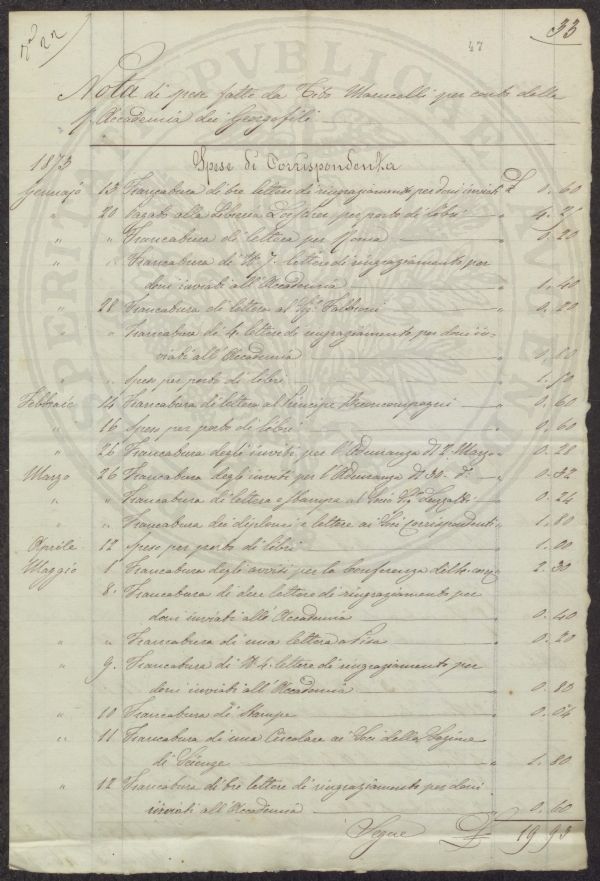 33
47
Nota di spese fatte da Tito Marucelli per conto della
R. Accademia dei Georgofili.
Spese di Corrispondenza
1873
Gennajo 13 Francatura di tre lettere di ringraziamento per doni inviati £ 0. 60
" 20 Pagato alla Libreria per porto di libri " 4. 25
" " Francatura di lettera per Roma " 0. 20
" " Francatura di N. 7. lettere di ringraziamento per
doni inviati all'Accademia " 1. 40
" 28 Francatura di lettera al Sig. Fabbroni " 0. 20
" " Francatura di 4 lettere di ringraziamento per doni in-
viati all'Accademia " 0. 80
" " Spese per porto di libri " 1. 50
Febbraio 14 Francatura di lettera al Principe Boncompagni " 0. 60
" 16 Spese per porto di libri " 0. 60
" 26 Francatura degli inviti per l'Adunanza d. 2 Marzo " 0. 28
Marzo 26 Francatura degli inviti per l'Adunanza d. 30. d. " 0. 32
" " Francatura di lettera e stampe al Luzzatti " 0. 24
" " Francatura dei diplomi e lettere ai Soci corrispondenti " 1. 80
Aprile 12 Spese per porto di libri " 1. 00
Maggio 1 Francatura degli avvisi per la Conferenza 2. 30
8. Francatura di due lettere di ringraziamento per
doni inviati all'Accademia " 0. 40
" " Francatura di una lettera a Pisa " 0. 20
" 9. Francatura di N. 4. lettere di ringraziamento per
doni inviati all'Accademia " 0. 80
" 10 Francatura di stampe " 0. 04
" 11 Francatura di una Circolare ai Soci della Sezione
di Scienze " 1. 80
" 12 Francatura di tre lettere di ringraziamento per doni
inviati all'Accademia " 0. 60
Segue £ 19 93